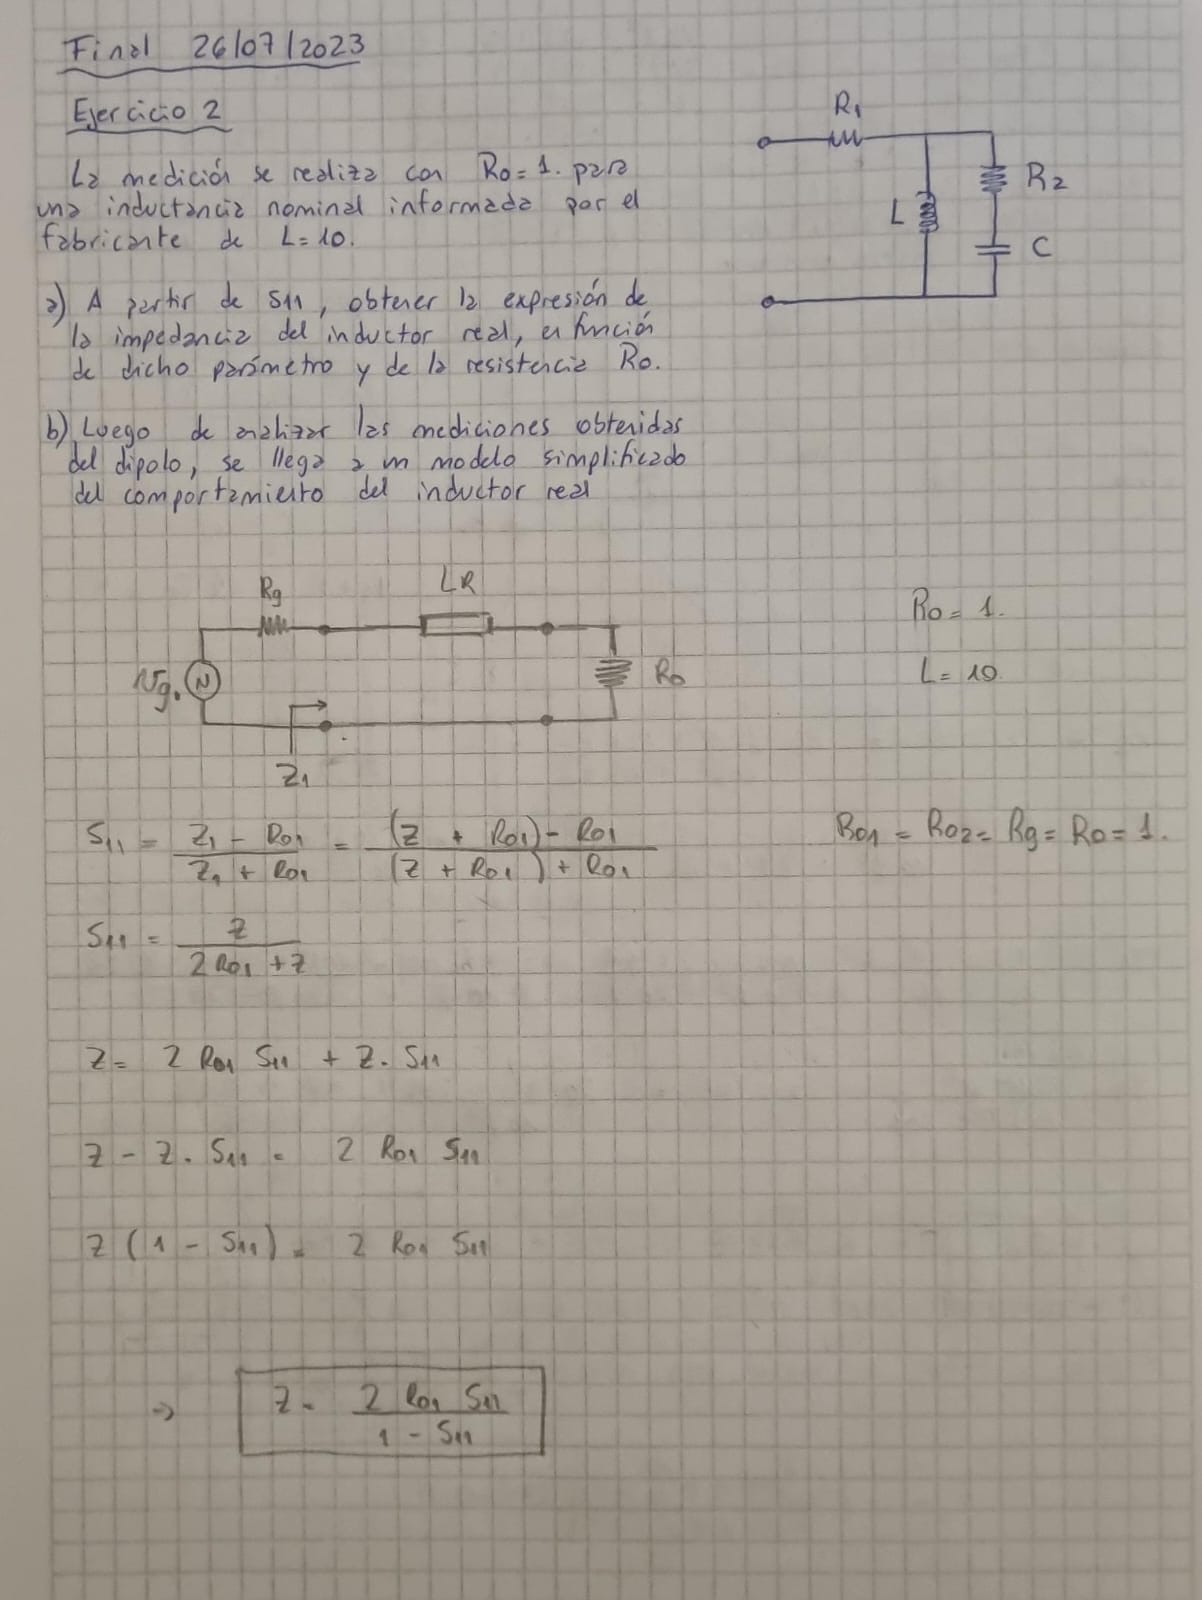 Final 26/07/2023
Ejercicio 2
La medición se realiza con Ro = 1. para
una inductancia nominal informada por el
fabricante de L = 10.
a) A partir de S11, obtener la expresión de
la impedancia del inductor real, en función
de dicho parámetro y de la resistencia Ro.
b) Luego de analizar las mediciones obtenidas
del dipolo, se llega a un modelo simplificado
del comportamiento del inductor real
R1
R2
L
C
Rg
LR
Vg.
Ro
Z1
Ro = 1.
L = 10
S11 = (Z1 - Ro1) / (Z1 + Ro1) = ((Z + Ro1) - Ro1) / ((Z + Ro1) + Ro1)
Ro1 = Ro2 = Rg = Ro = 1.
S11 = Z / (2 Ro1 + Z)
Z = 2 Ro1 S11 + Z . S11
Z - Z . S11 = 2 Ro1 S11
Z (1 - S11) = 2 Ro1 S11
=> Z = (2 Ro1 S11) / (1 - S11)